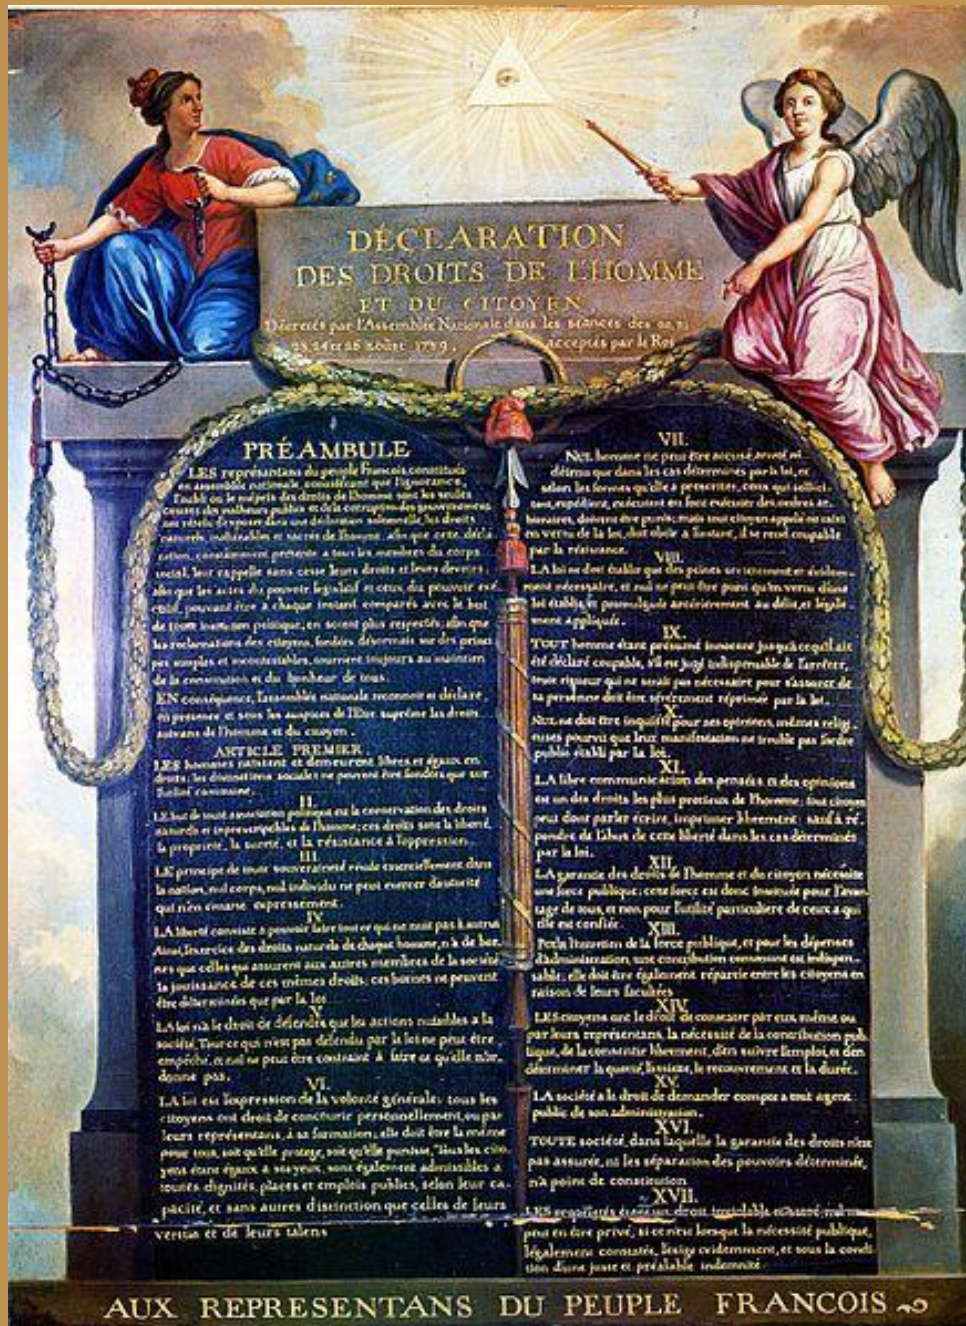 DÉCLARATION
DES DROITS DE L'HOMME
ET DU CITOYEN,
Décretés par l'Assemblée Nationale dans les séances des 20, 21
23, 24 et 26 aoûst 1789, acceptés par le Roi
PRÉAMBULE
LES représentans du peuple François, constitués
en assemblée nationale, considérant que l'ignorance,
l'oubli ou le mépris des droits de l'homme sont les seules
causes des malheurs publics et de la corruption des gouvernemens
ont résolu d'exposer dans une déclaration solemnelle, les droits
naturels, inaliénables et sacrés de l'homme; afin que cette décla
ration, constamment présente a tous les membres du corps
social, leur rappelle sans cesse leurs droits et leurs devoirs;
afin que les actes du pouvoir législatif et ceux du pouvoir ex
écutif, pouvant être à chaque instant comparés avec le but
de toute institution politique, en soient plus respectés; afin que
les réclamations des citoyens, fondées désormais sur des princi
pes simples et incontestables, tournent toujours au maintien
de la constitution et du bonheur de tous.
EN conséquence, l'assemblée nationale reconnoit et déclare
en presence et sous les auspices de l'Etre suprême les droits
suivans de l'homme et du citoyen.
ARTICLE PREMIER.
LES hommes naissent et demeurent libres et égaux en
droits; les distinctions sociales ne peuvent être fondées que sur
l'utilité commune.
II.
LE but de toute association politique est la conservation des droits
naturels et inprescriptibles de l'homme; ces droits sont la liberté,
la propriété, la sureté, et la résistance à l'oppression.
III.
LE principe de toute souveraineté réside essentiellement dans
la nation, nul corps, nul individu ne peut exercer d'autorité
qui n'en emane expressement.
IV.
LA liberté consiste a pouvoir faire tout ce qui ne nuit pas à autrui
Ainsi, l'exercice des droits naturels de chaque homme, n'a de bor
nes que celles qui assurent aux autres membres de la société
la jouissance de ces mêmes droits; ces bornes ne peuvent
être déterminées que par la loi
V.
LA loi n'a le droit de défendre que les actions nuisibles a la
société. Tout ce qui n'est pas défendu par la loi ne peut être
empêché, et nul ne peut être contraint à faire ce qu'elle n'or-
donne pas.
VI.
LA loi est l'expression de la volonté générale; tous les
citoyens ont droit de concourir personnellement, ou par
leurs représentans, à sa formation; elle doit être la même
pour tous, soit qu'elle protege, soit qu'elle punisse. Tous les cito
yens étant égaux à ses yeux, sont également admissibles a
toutes dignités, places et emplois publics, selon leur ca-
pacité, et sans autres distinction que celles de leurs
vertus et de leurs talens
VII.
NUL homme ne peut être accusé, arreté ni
détenu que dans les cas déterminés par la loi, et
selon les formes qu'elle a prescrites, ceux qui sollici-
tent, expédient, exécutent ou font exécuter des ordres ar-
bitraires, doivent être punis; mais tout citoyen appelé ou saisi
en vertu de la loi, doit obéir à l'instant, il se rend coupable
par la résistance.
VIII.
LA loi ne doit établir que des peines strictement et évidem-
ment nécessaire, et nul ne peut être puni qu'en vertu d'une
loi établie et promulguée antérieurement au délit, et légale-
ment appliquée.
IX.
TOUT homme étant présumé innocent jusqu'à ce qu'il ait
été déclaré coupable, s'il est jugé indispensable de l'arrêter,
toute rigueur qui ne serait pas nécessaire pour s'assurer de
sa personne doit être sévèrement réprimée par la loi.
X.
NUL ne doit être inquiété pour ses opinions, mêmes religi-
euses pourvu que leur manifestation ne trouble pas l'ordre
public établi par la loi.
XI.
LA libre communication des pensées et des opinions
est un des droits les plus precieux de l'homme; tout citoyen
peut donc parler écrire, imprimer librement; sauf à ré-
pondre de l'abus de cette liberté dans les cas déterminés
par la loi.
XII.
LA garantie des droits de l'homme et du citoyen nécessite
une force publique; cette force est donc instituée pour l'avan-
tage de tous, et non pour l'utilité particulière de ceux a qui
elle est confiée.
XIII.
POUR l'entretien de la force publique, et pour les dépenses
d'administration, une contribution commune est indispen-
sable; elle doit être également répartie entre les citoyens en
raison de leurs facultées
XIV.
LES citoyens ont le droit de constater par eux même ou
par leurs représentans, la nécessité de la contribution pub-
lique, de la consentir librement, d'en suivre l'emploi, et d'en
déterminer la quotité, l'assiette, le recouvrement et la durée.
XV.
LA société a le droit de demander compte a tout agent
public de son administration.
XVI.
TOUTE société, dans laquelle la garantie des droits n'est
pas assurée, ni les séparation des pouvoirs déterminée,
n'a point de constitution
XVII.
LES propriétés étant un droit inviolable et sacré, nul ne
peut en être privé, si ce n'est lorsque la nécessité publique,
légalement constatée, l'exige evidemment, et sous la condi
tion d'une juste et préalable indemnité
AUX REPRESENTANS DU PEUPLE FRANCOIS